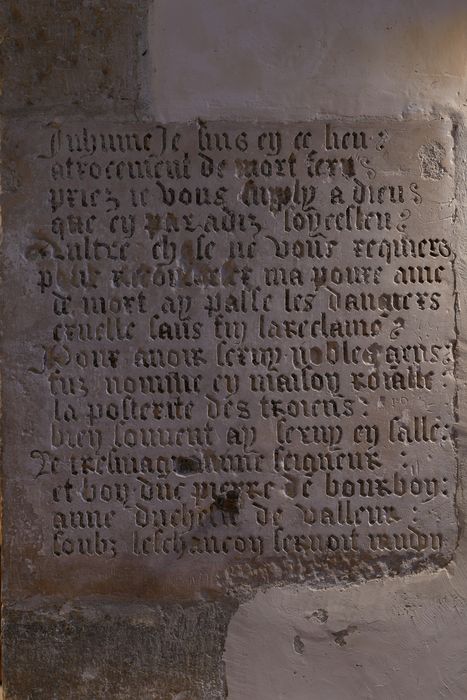 Inhume Je suis en ce lieu
atrocement de mort feru
priez ie vous suply a dieu
que en paradiz soye esleu
Aultre chose ne vous requiers
po recomander ma poure ame
de mort ay passe les dangiers
cruelle sans fin la reclame
Pour avoir servy nobles gens
fuz nomme en maison roialle
la posterite des troiens
bien souvent ay servy en salle
Le tresmagnanime seigneur
et bon duc pierre de bourbon
anne duchesse de valleur
soubz leschancon servoit mudon